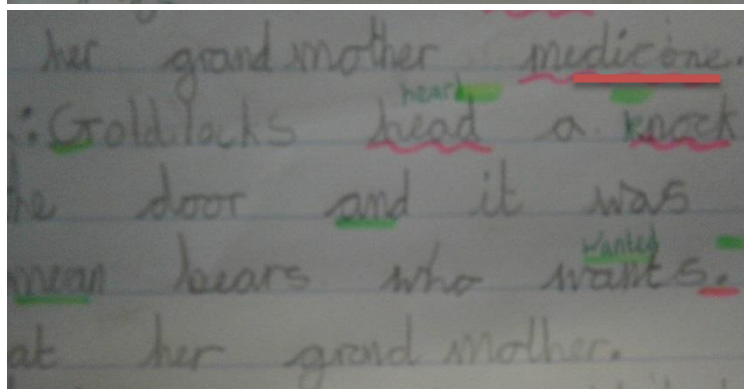 her grandmother medicine.
: Goldilocks head heard a knock
he door and it was
mean bears who wants wanted.
at her grand mother.